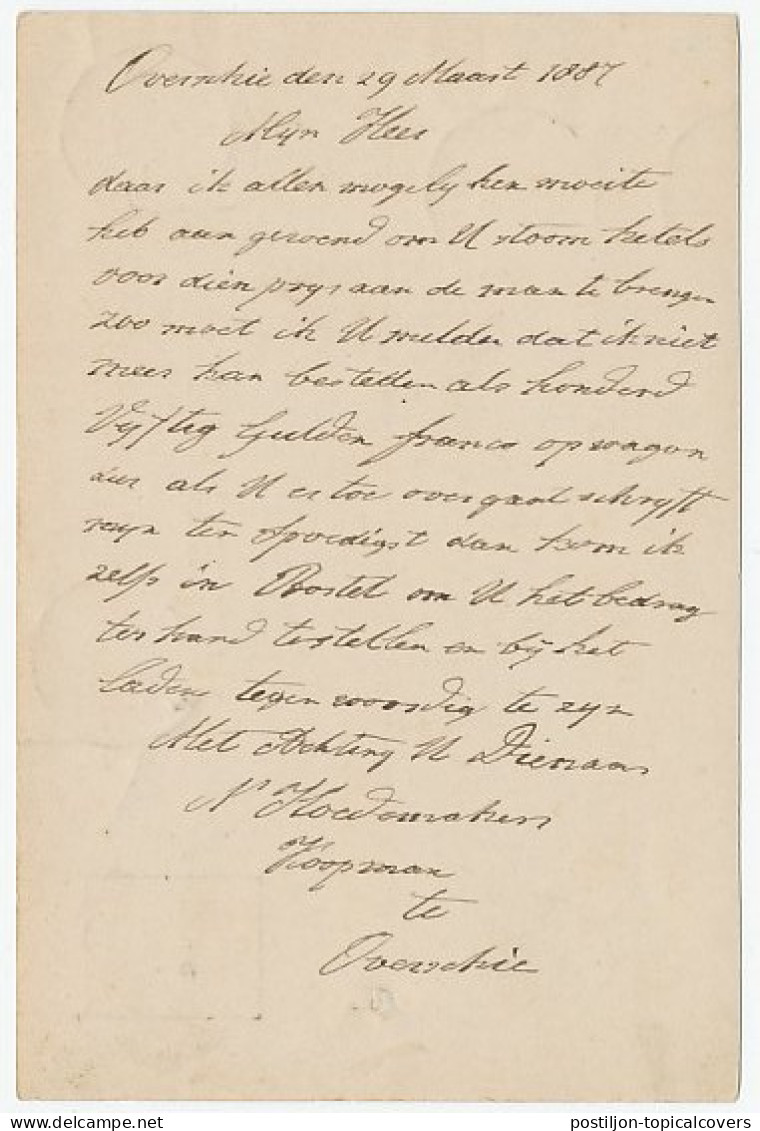 Overschie den 29 Maart 1887
Myn Heer
daar ik allen mogely ken moeite
heb aan gewend om U stoom ketels
voor dien prys aan de man te brengen
zoo moet ik U melden dat ik niet
meer kan bestellen als honderd
Vyftig Gulden franco op wagon
dus als U er toe over gaat schryft
myn ten spoedigst dan kom ik
zelfs in Boxtel om U het bedrag
ter hand te stellen en bij het
laden tegen woordig te zyn
Met Achting U Dienaar
N Hoedemakers
Koopman
te
Overschie
postiljon-topicalcovers